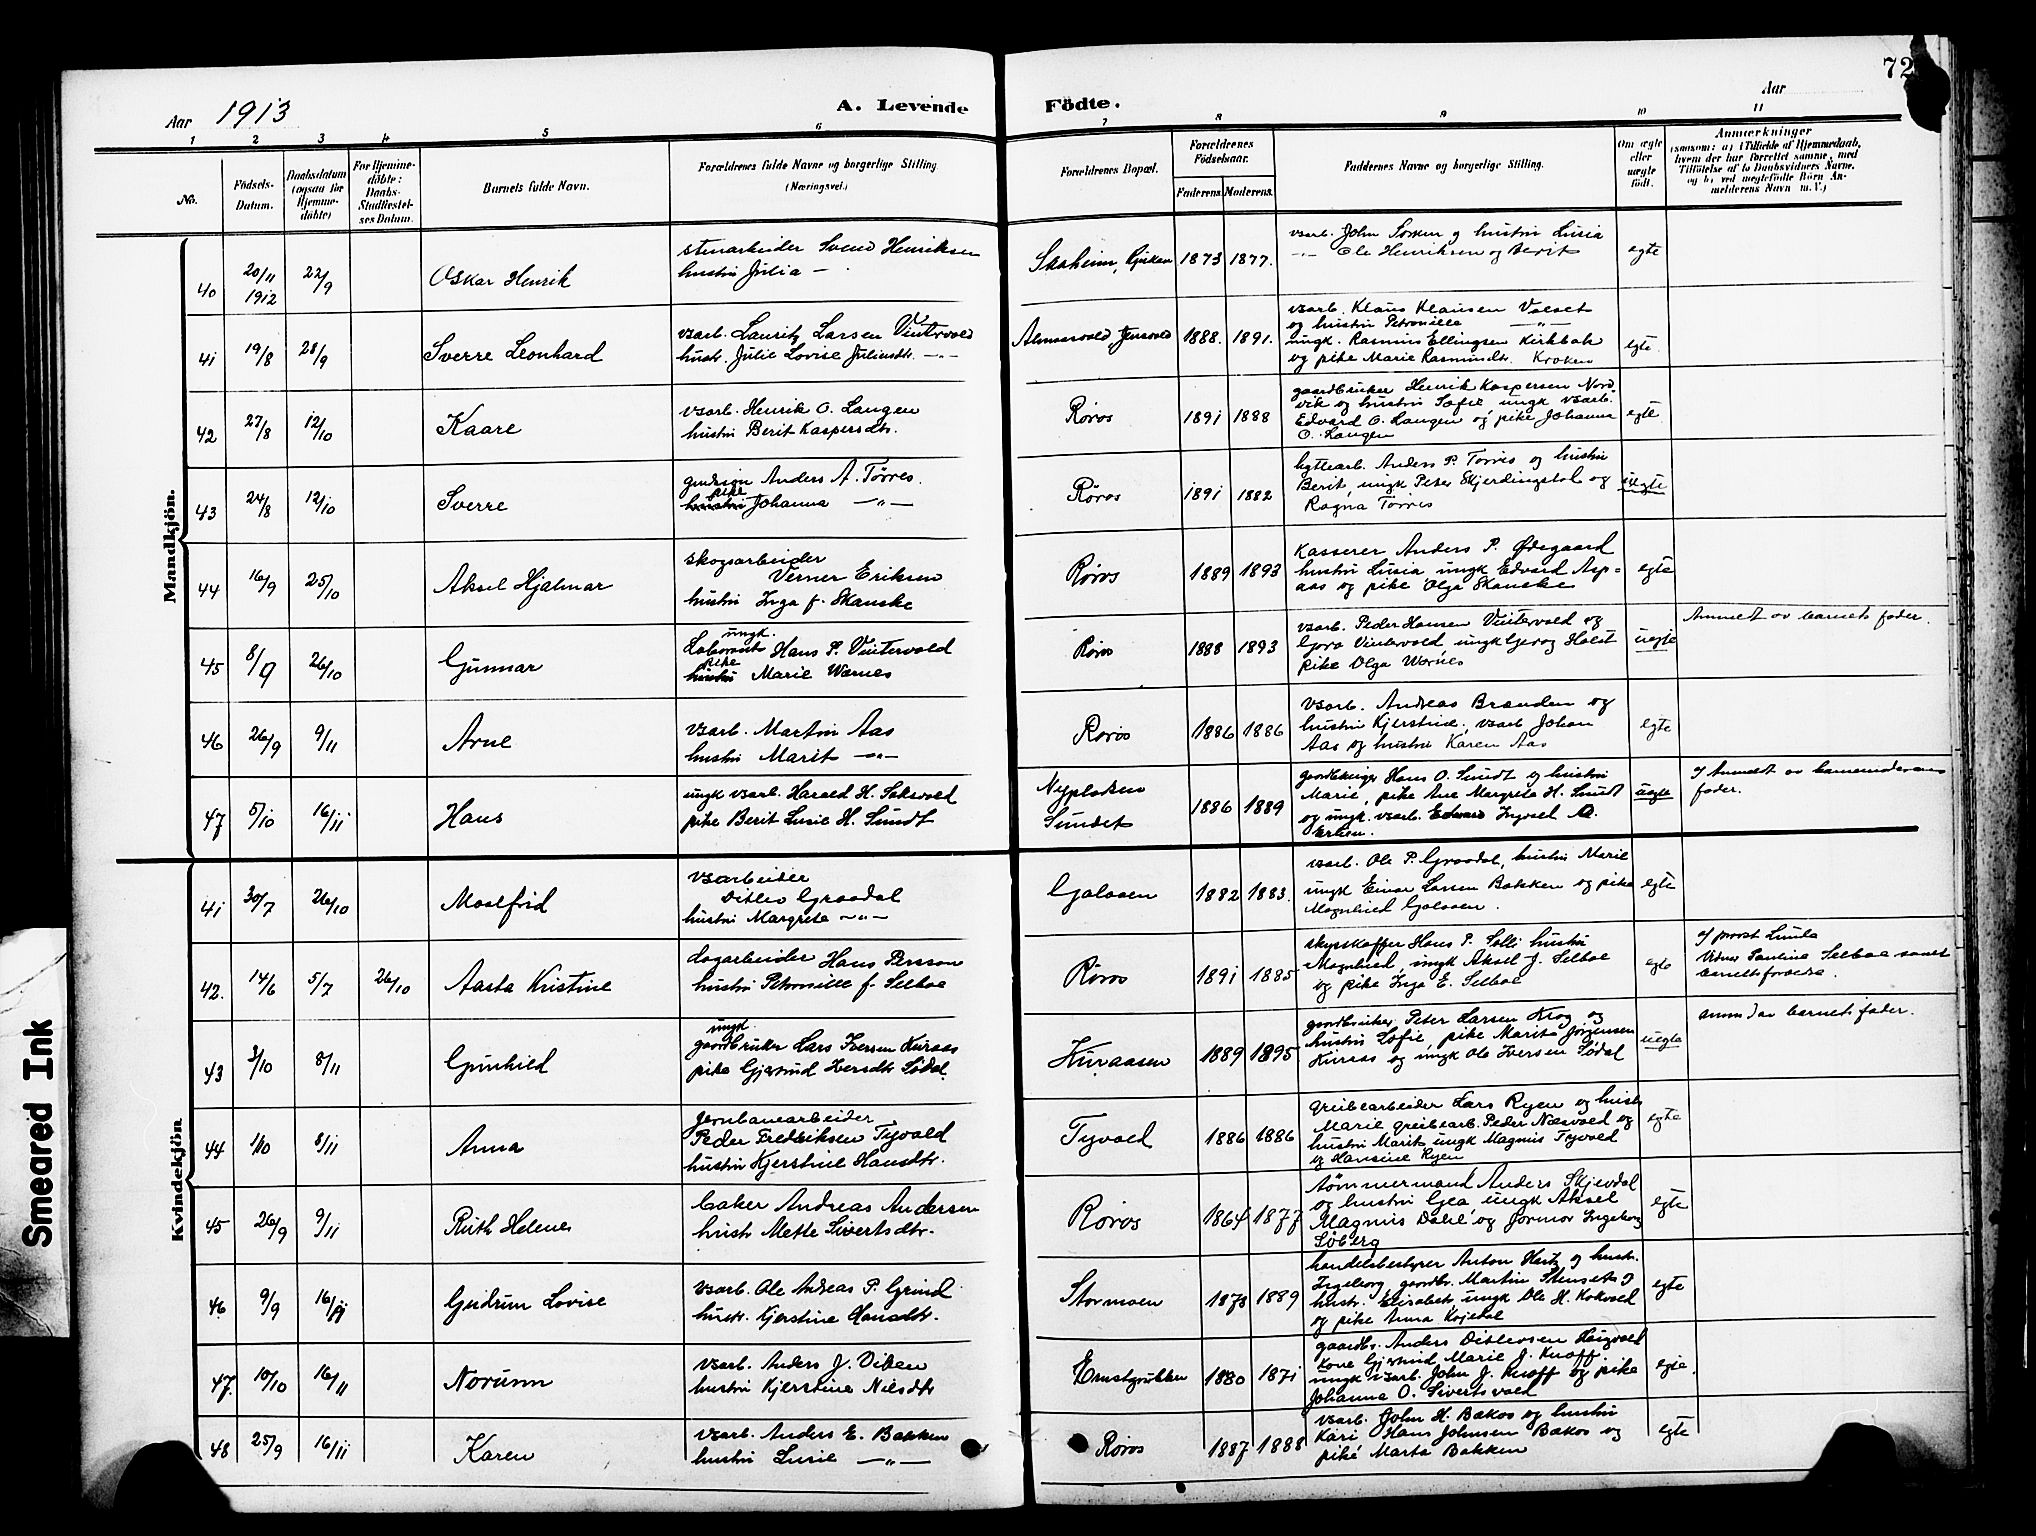 72
Aar 1913
A. Levende
Födte.
Aar
1 2 3 4 5 6 7 8 9 10 11
No.
Födsels-Datum.
Daabsdatum (ogsaa for Hjemme-döbte)
For Hjemme-döbte: Daabs-Stadfæstel-ses Datum.
Barnets fulde Navn.
Forældrenes fulde Navne og borgerlige Stilling (Næringsvei.)
Forældrenes Bopæl.
Forældrenes Födselsaar.
Faderens. Moderens.
Faddernes Navne og borgerlige Stilling.
Om ægte eller uægte født.
Anmærkninger
(saasom: a) i Tilfælde af Hjemmedaab, hvem der har forrettet samme, med Tilföielse af to Daabsvidners Navne, og b) ved uægtefödte Börn Anmelderens Navn m. V.)
Mandkjön.
40 20/11 1912 22/9 Oskar Henrik
stenarbeider Svend Henriksen
hustru Julia —
Saaheim, Rjukan 1873 1877.
vsarb. John Somen og hustru Lusia
-"- Ole Henriksen og Berit
egte
41 19/8 28/9 Sverre Leonhard
vsarb. Lauritz Larsen Vintervold
hustr. Julie Lovise Juliusdtr. -"-
1888. 1891.
vsarb. Klaus Klausen Volset
og hustru Petronille -"-
ungk. Rasmus Ellingsen Kirkbak
og pike Marie Rasmusdtr. Kroken
egte.
42 27/8 12/10 Kaare
vsarb. Henrik O. Langen
hustru Berit Kaspersdtr.
Røros 1891 1888
gaardbruker Henrik Kaspersen Nord-
vik og hustru Sofie ungk vsarb.
Edvard O. Langen og pike Johanna
O. Langen
egte
43 24/8 12/10 Sverre
Anders A. Törres.
pike
hustru Johanna -"-
Røros 1891 1882
hyttearb. Anders P. Torres og hustru
Berit, ungk Peter Skjerdingstad og
Ragna Törres
uegte
44 16/9 25/10 Aksel Hjalmar
skogsarbeider
Verner Eriksen
hustru Inga f. Skanske
Røros 1889 1893
Kasserer Anders P. Ødegaard
hustru Lusia ungk Edvard Asp-
aas og pike Olga Skanske
egte
45 8/9 26/10 Gunnar
ungk.
Laborant Hans P. Vintervold
pike
hustru Marie Wærnes
Røros 1888 1893
vsarb. Peder Hansen Vintervold og
Gora Vintervold, ungk Georg Holst
pike Olga Wærnes
uegte
Anmeldt av barnets fader.
46 26/9 9/11 Arne
vsarb. Martin Aas
hustru Marit -"-
Røros 1886 1886
vsarb. Andreas Branden og
hustru Kjerstine, vsarb Johan
Aas og hustru Karen Aas
egte
47 5/10 16/11 Hans
ungk vsarb. Harald H. Saksvold
pike Berit Lusie H. Sundt
Nypladsen
Sundet 1886 1889
gaardbruger Hans O. Sundt og hustru
Marie, pike Ane Margrete H. Sundt
og ungk. vsarb. Edvard Ingvol O.
uegte
Anmeldt av barnemoderens
fader.
Kvindekjön
41 30/7 26/10 Maalfrid
vsarbeider
Ditlev Graadal
hustru Margrete -"-
Galaaen 1882 1883.
vsarb. Ole P. Graadal, hustru Marie
ungk Einar Larsen Bakken og pike
Magnhild Galaaen.
egte
42. 14/6 5/7 26/10 Aasta Kristine
dagarbeider Hans Persson
hustru Petronille f. Selboe
Røros 1891 1885
skysskaffer Hans P. Solli hustru
Magnhild, ungk Aksel J. Selboe
og pike Inga E. Selboe
egte
af prost Lunde
Vidner Pauline Selboe samt
barnets foreldre.
43 3/10 8/11 Gunhild
ungk.
gaardbruker Lars Iversen Kuraas
pike Gjertrud Iversdtr Sødal
Kuraasen 1889 1895
gaardbruker Peter Larsen Krog og
hustru Sofie, pike Marit Jørgensen
Kuraas og ungk Ole Iversen Sødal
uegte
anm. av barnets fader.
44 1/10 8/11 Anna
Jernbanearbeider
Peder Fredriksen Tyvold
hustru Kjerstine Hansdtr.
Tyvold 1886 1886
grubearbeider Lars Ryen og hustr
Marie grubearb. Peder Næsvold og
hustru Marit ungk Magnus Tyvold
og Hansine Ryen
egte
45 26/9 9/11 Ruth Helene
baker Andreas Andersen
hustr Mette Sivertsdtr.
Røros 1864 1877
tömmermand Anders Skjevdal
og hustru Gea ungk Aksel
Magnus Dahl og Jormor Ingeborg
Söberg
egte
46 9/9 16/11 Gudrun Lovise
vsarb. Ole Andreas P. Grind
hustr. Kjerstine Hansdtr.
Stormoen 1878 1889
handelsbestyrer Anton Hartz og hustr.
Ingeborg, gaardbr. Martin Stenset og
hustr. Elisabet, ungk Ole H. Kokvold
og pike Anna Kojedal
egte
47. 10/10 16/11 Norunn
vsarb. Anders J. Viken
hustru Kjerstine Nilsdtr
Ernstgruben 1880 1871
gaardbr. Anders Ditlevsen Haugvold
kone Gjertrud, Marie J. Knoff.
ungk vsarb. John J. Knoff og pike
Johanna O. Sivertsvold
egte.
48 25/9 16/11 Karen
vsarb. Anders E. Bakken
hustru Lusie -"-
Røros 1887 1888
vsarb. John H. Bakos og hustru
Kari Hans Johnsen Bakos og
pike Marta Bakken
egte
Smeared Ink